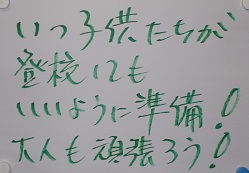 いつ子供たちが
登校にても
いいように準備!
大人も頑張ろう!